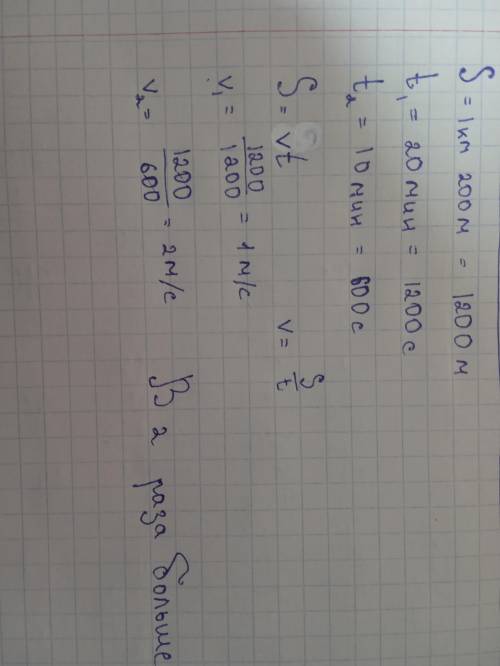 S = 1 км 200 м = 1200 м
t₁ = 20 мин = 1200 с
t₂ = 10 мин = 600 с
S = vt   v = S/t
v₁ = 1200/1200 = 1 м/с
v₂ = 1200/600 = 2 м/с   В 2 раза больше